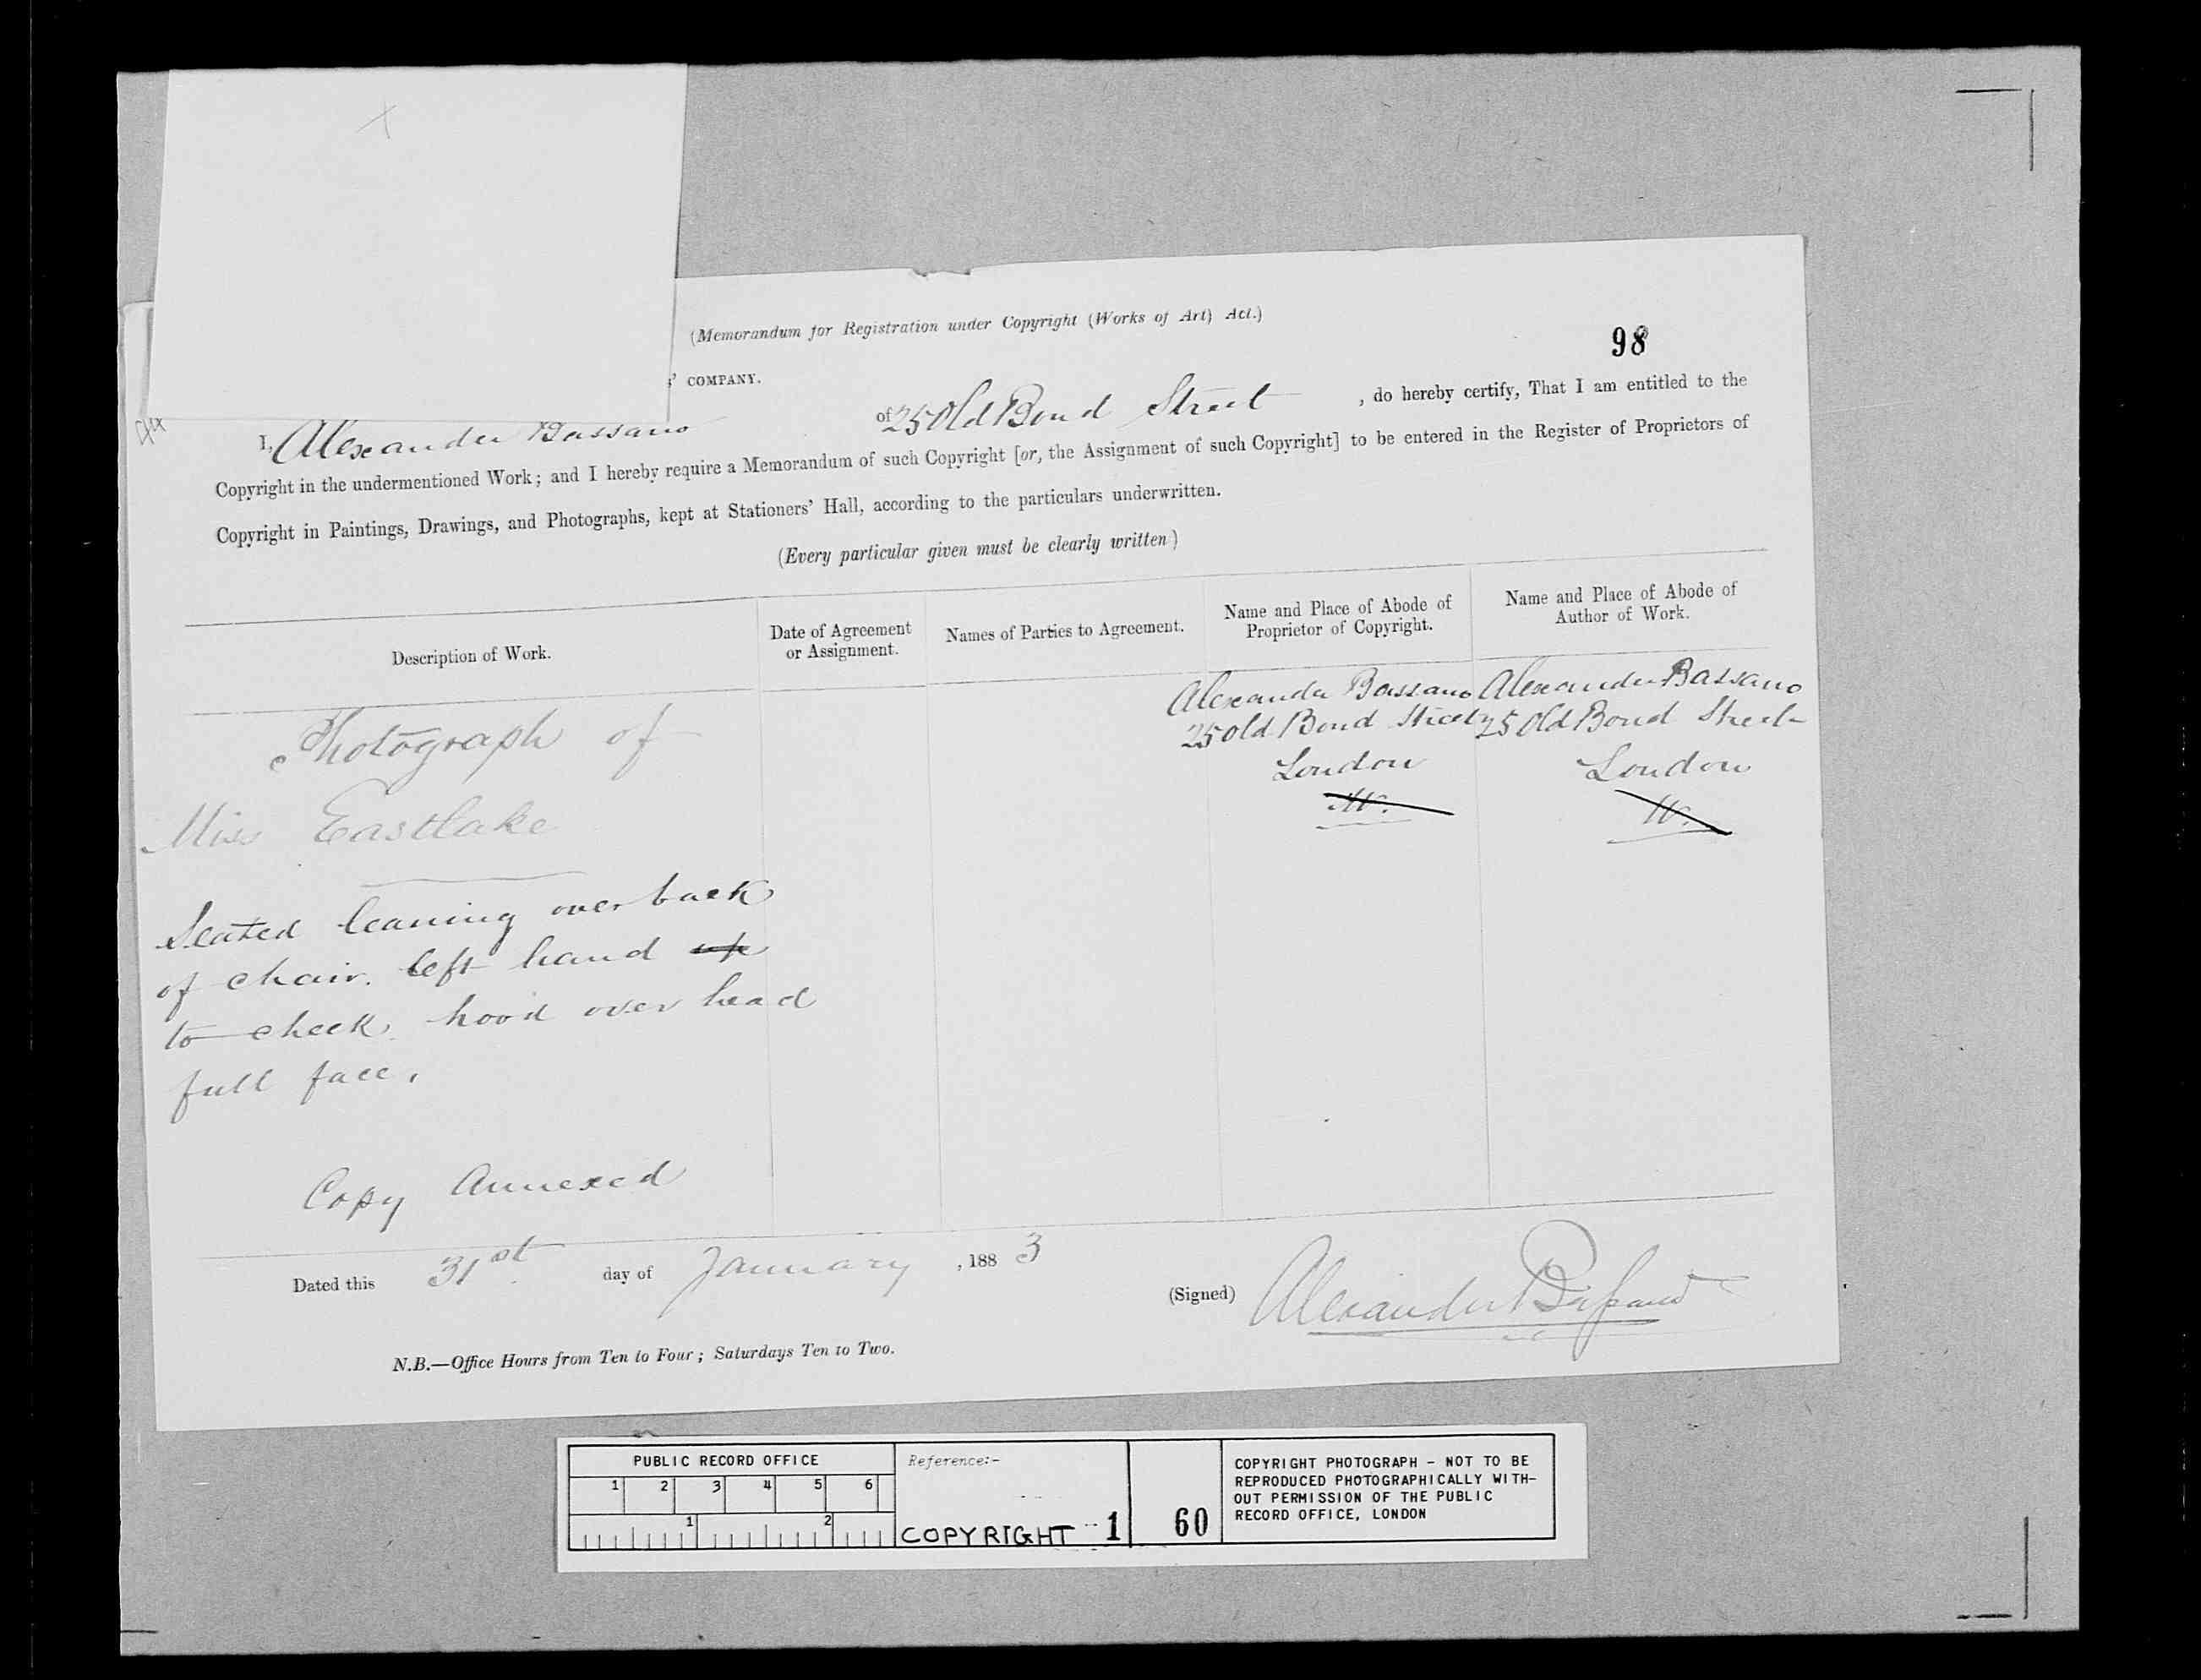 (Memorandum for Registration under Copyright (Works of Art) Act.)
98
' COMPANY.
I, Alexander Bassano of 25 Old Bond Street , do hereby certify, That I am entitled to the
Copyright in the undermentioned Work; and I hereby require a Memorandum of such Copyright [or, the Assignment of such Copyright] to be entered in the Register of Proprietors of
Copyright in Paintings, Drawings, and Photographs, kept at Stationers' Hall, according to the particulars underwritten.
(Every particular given must be clearly written)
Description of Work.
Date of Agreement
or Assignment.
Names of Parties to Agreement.
Name and Place of Abode of
Proprietor of Copyright.
Name and Place of Abode of
Author of Work.
Photograph of
Miss Eastlake
Seated leaning over back
of chair. left hand up
to cheek, hood over head
full face,
Copy Annexed
Alexander Bassano
25 old Bond Street
London
W.
Alexander Bassano
25 Old Bond Street
London
W.
Dated this 31st day of January , 1883
(Signed) Alexander Bassano
N.B.—Office Hours from Ten to Four; Saturdays Ten to Two.
PUBLIC RECORD OFFICE
1 2 3 4 5 6
1 2
Reference:-
COPYRIGHT 1
60
COPYRIGHT PHOTOGRAPH - NOT TO BE
REPRODUCED PHOTOGRAPHICALLY WITH-
OUT PERMISSION OF THE PUBLIC
RECORD OFFICE, LONDON